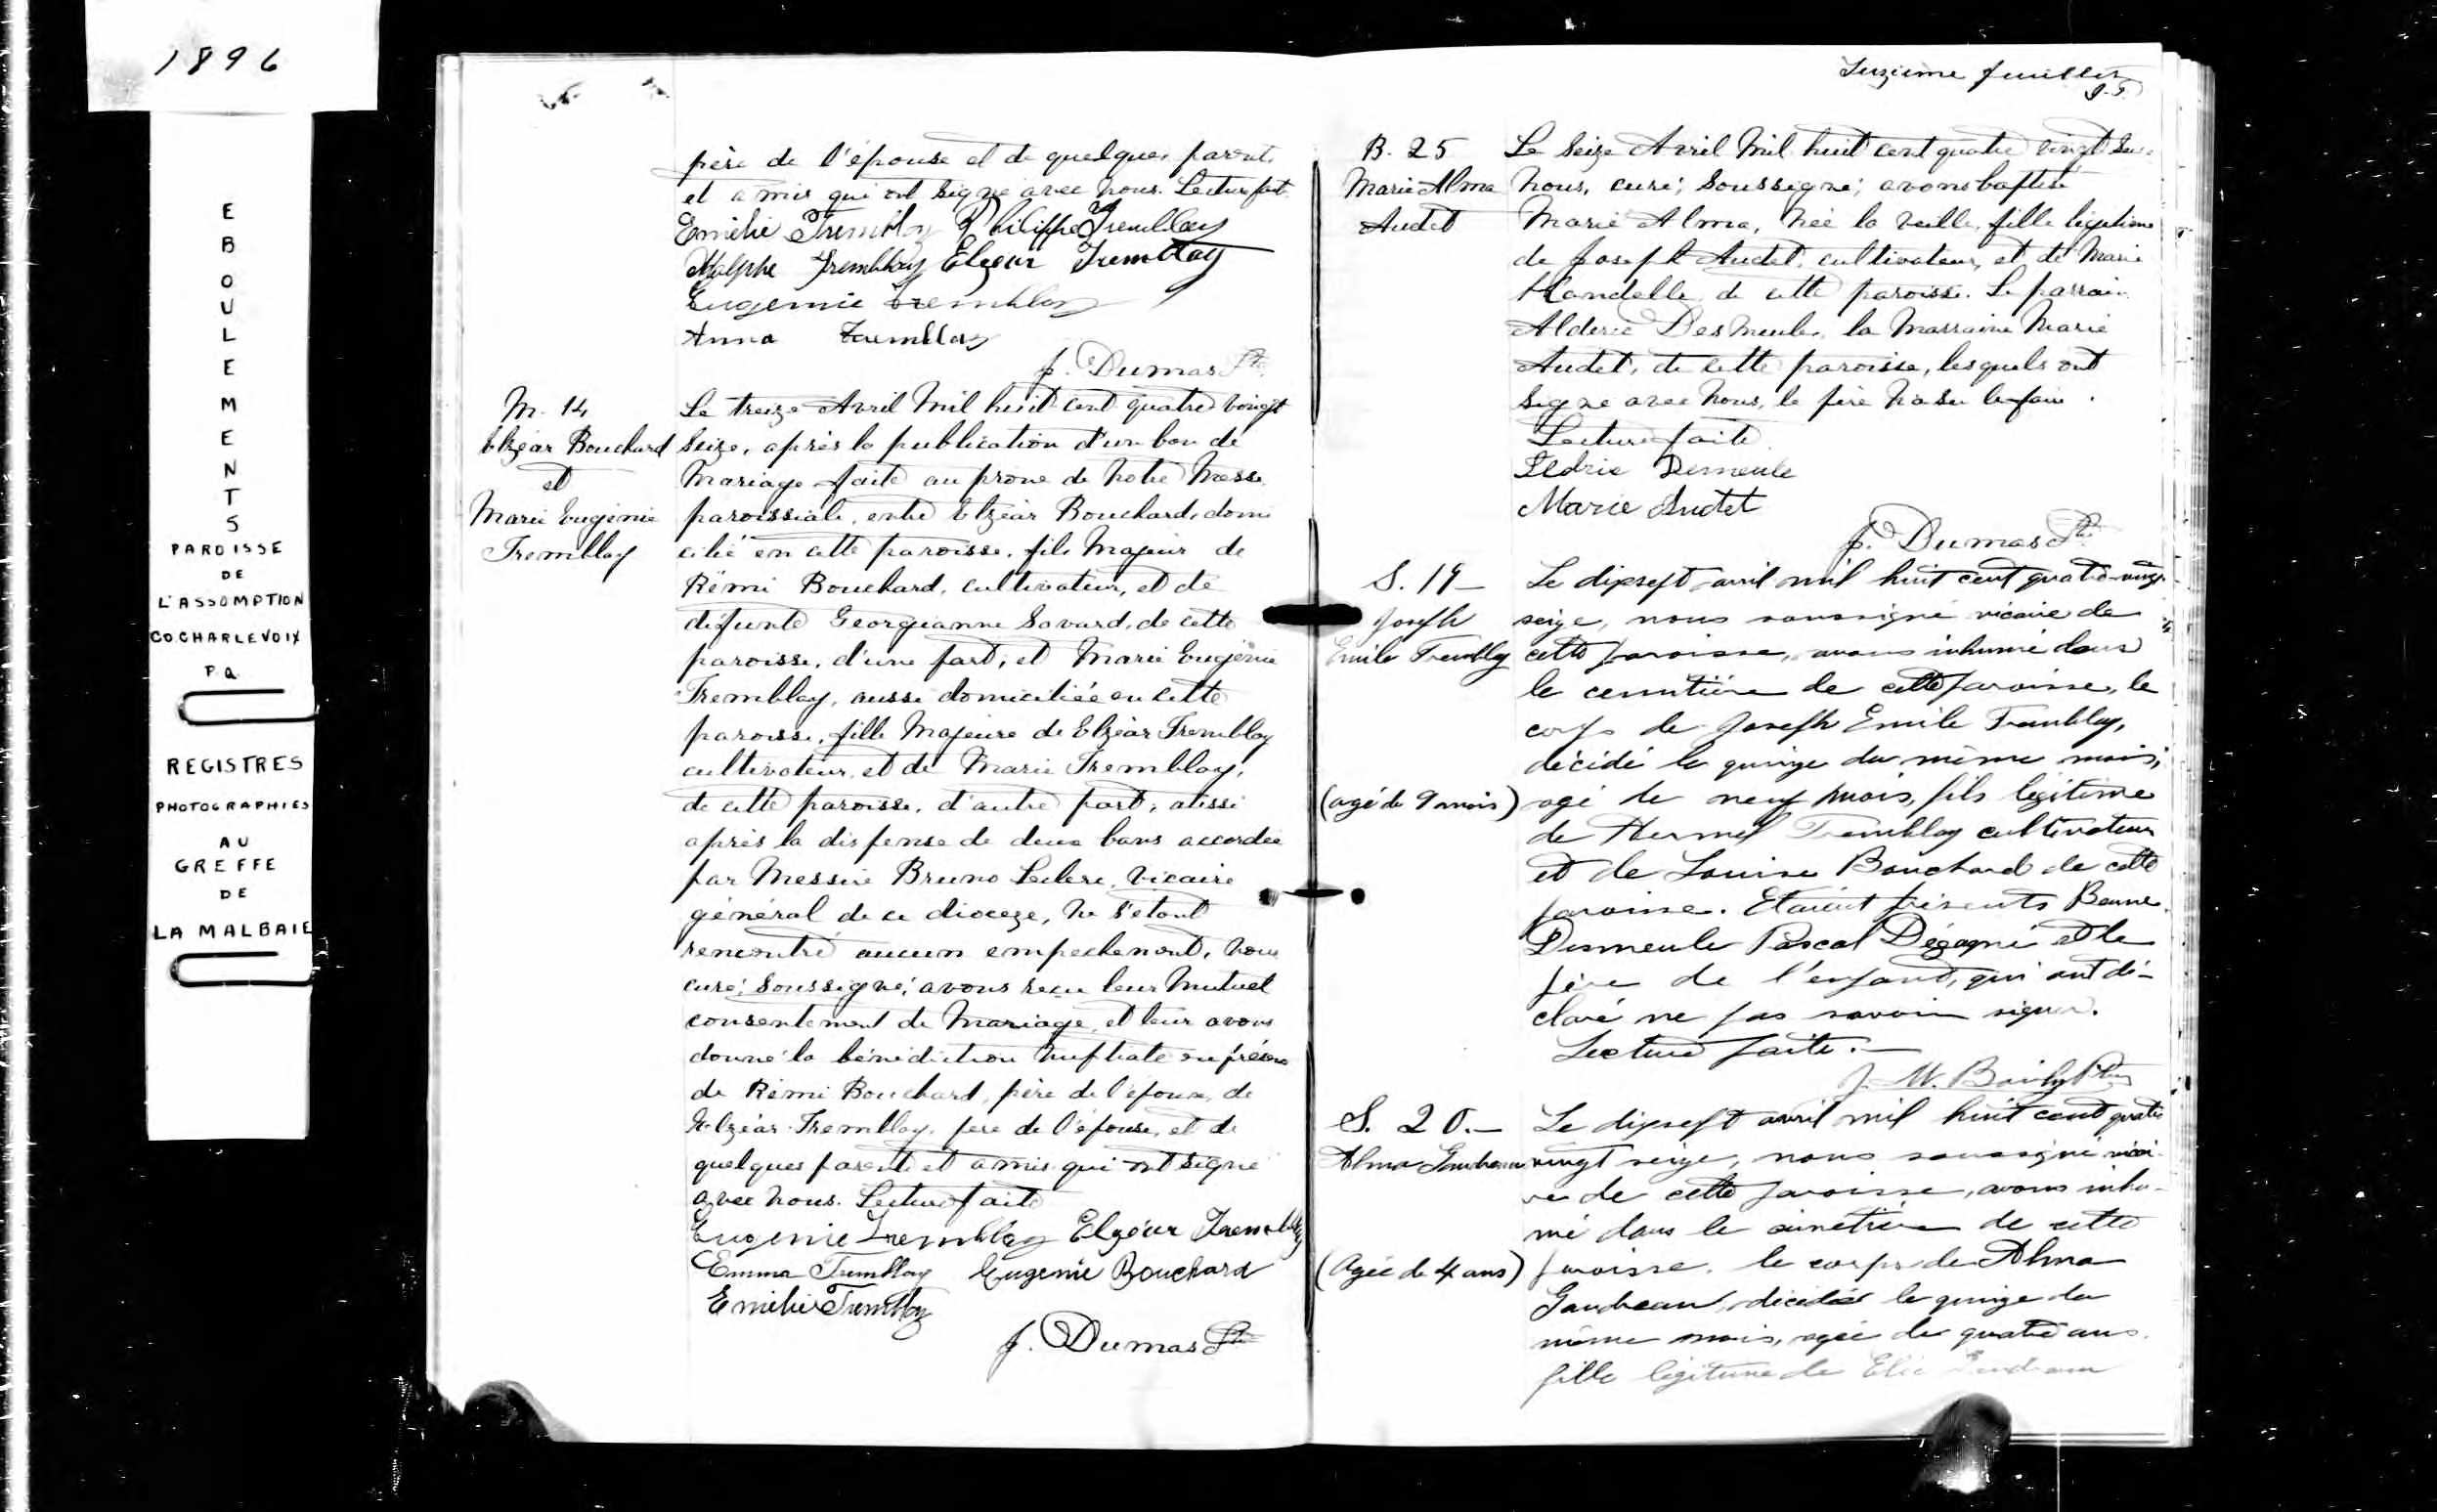 1896
E
B
O
U
L
E
M
E
N
T
S
PAROISSE
DE
L'ASSOMPTION
CO CHARLEVOIX
P Q
REGISTRES
PHOTOGRAPHIES
AU
GREFFE
DE
LA MALBAIE
père de l'épouse et de quelques parents
et amis qui ont signé avec nous. Lecture fait
Emélie Tremblay Philippe Tremblay
Adolphe Tremblay Elzear Tremblay
Eugenie Tremblay
Anna Tremblay
J. Dumas Ptre
M. 14
Elzéar Bouchard
et
Marie Eugénie
Tremblay
Le treize Avril Mil huit cent quatre vingt
Seize, après la publication d'un ban de
Mariage faite au prone de notre Messe
paroissiale, entre Elzéar Bouchard, domi
cilié en cette paroisse, fils Majeur de
Rémi Bouchard, cultivateur, et de
défunte Georgianne Savard, de cette
paroisse, d'une part, et Marie Eugénie
Tremblay, aussi domiciliée en cette
paroisse, fille Majeure de Elzéar Tremblay
cultivateur, et de Marie Tremblay,
de cette paroisse, d'autre part; aussi
après la dispense de deux bans accordée
par Messire Bruno Leclerc, Vicaire
général de ce diocèze, ne s'étant
rencontré aucun empechement, nous
curé, Soussigné, avons reçu leur Mutuel
consentement de Mariage, et leur avons
donné la bénédiction nuptiale en présence
de Rémi Bouchard, père de l'époux, de
Elzéar Tremblay, père de l'épouse, et de
quelques parents et amis qui ont signé
avec nous. Lecture faite
Eugenie Tremblay Elzéar Tremblay
Emma Tremblay Eugenie Bouchard
Emélie Tremblay
J. Dumas Ptre
feuillet
B. 25
Marie Alma
Audet
Le Seize Avril Mil huit cent quatre vingt Seize
nous, curé, Soussigné, avons baptisé
Marie Alma, née la veille, fille légitime
de Joseph Audet, cultivateur, et de Marie
de cette paroisse. Le parrain
Alderic DesMeules, la Marraine Marie
Audet, de cette paroisse, lesquels ont
Signé avec nous, le père n'a su le faire.
Lecture faite
Demeule
Marie Audet
J. Dumas Ptre
S. 19 –
Joseph
Emile Tremblay
(agé de 9 mois)
Le dixsept avril mil huit cent quatre-vingt
seize, nous soussigné vicaire de
cette paroisse, avons inhumé dans
le cemitière de cette paroisse, le
corps de Joseph Emile Tremblay,
décédé le quinze du même mois,
agé de neuf mois, fils légitime
de Hermel Tremblay cultivateur
et de Louise Bouchard de cette
paroisse. Etaient présents
Desmeule Pascal Dégagné et le
père de l'enfant, qui ont dé-
claré ne pas savoir signer.
Lecture faite. –
S. 20. –
Alma Gaudreau
(Agée de 4 ans)
Le dixsept avril mil huit cent quatre
vingt seize, nous soussigné vicai-
re de cette paroisse, avons inhu-
mé dans le cimetière de cette
paroisse, le corps de Alma
Gaudreau, décédée le quinze du
même mois, agée de quatre ans
fille légitime de Elie Gaudreau